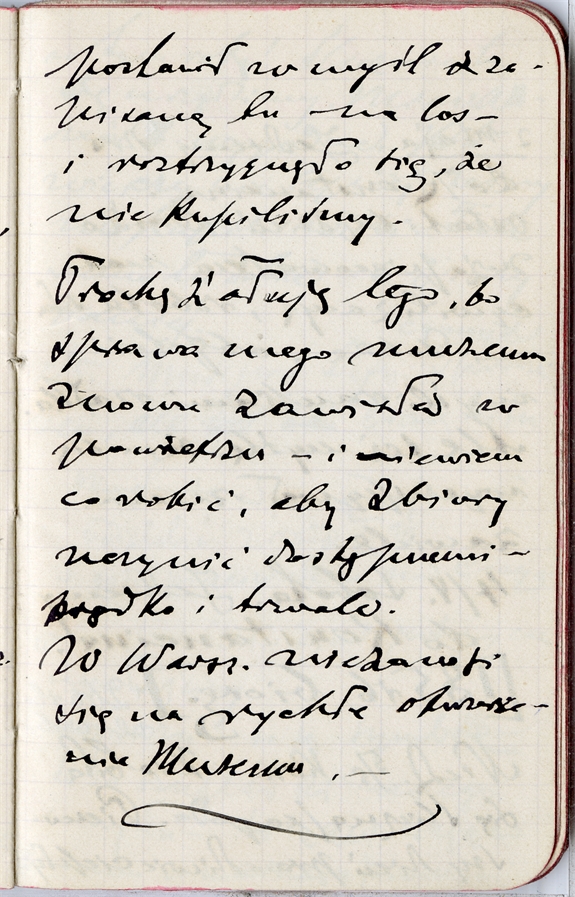 postawił w myśl dro-
pisaną tu – na los –
i roztrzygnęło się, że
nie kupiliśmy.
Trochę żałuję tego, bo
sprawa mego muzeum
znowu zawisła w
powietrzu – i niewiem
co robić, aby zbiory
uczynić dostępnemi –
prędko i trwale.
W Warsz. niezanosi
się na rychłe otworze-
nie Muzeum. –